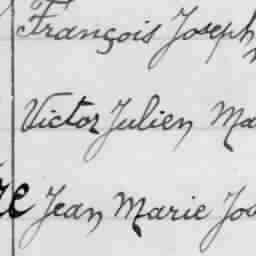 François Joseph
Victor Julien Ma
Jean Marie Jos